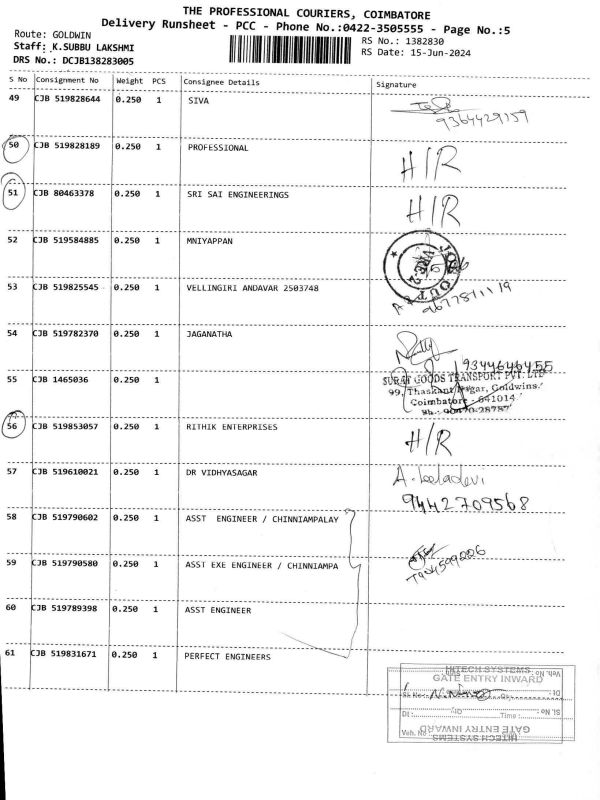 THE PROFESSIONAL COURIERS, COIMBATORE
Delivery Runsheet - PCC - Phone No.:0422-3505555 - Page No.:5
Route: GOLDWIN
RS No.: 1382830
Staff: K.SUBBU LAKSHMI
RS Date: 15-Jun-2024
DRS No.: DCJB138283005
S No Consignment No Weight PCS Consignee Details Signature
49 CJB 519828644 0.250 1 SIVA
9364429159
50 CJB 519828189 0.250 1 PROFESSIONAL H/R
51 CJB 80463378 0.250 1 SRI SAI ENGINEERINGS H/R
52 CJB 519584885 0.250 1 MNIYAPPAN
53 CJB 519825545 0.250 1 VELLINGIRI ANDAVAR 2503748
54 CJB 519782370 0.250 1 JAGANATHA
9344646455
55 CJB 1465036 0.250 1
SURAT GOODS TRANSPORT PVT. LTD
99, Thaskant Nagar, Goldwins.
Coimbatore - 641014
Ph.: 90470-28787
56 CJB 519853057 0.250 1 RITHIK ENTERPRISES H/R
57 CJB 519610021 0.250 1 DR VIDHYASAGAR A. beladevi
9442709568
58 CJB 519790602 0.250 1 ASST ENGINEER / CHINNIAMPALAY
59 CJB 519790580 0.250 1 ASST EXE ENGINEER / CHINNIAMPA
60 CJB 519789398 0.250 1 ASST ENGINEER
61 CJB 519831671 0.250 1 PERFECT ENGINEERS
HITECH SYSTEMS
GATE ENTRY INWARD
Sl. No.:
Dt.: Time:
Veh. No.